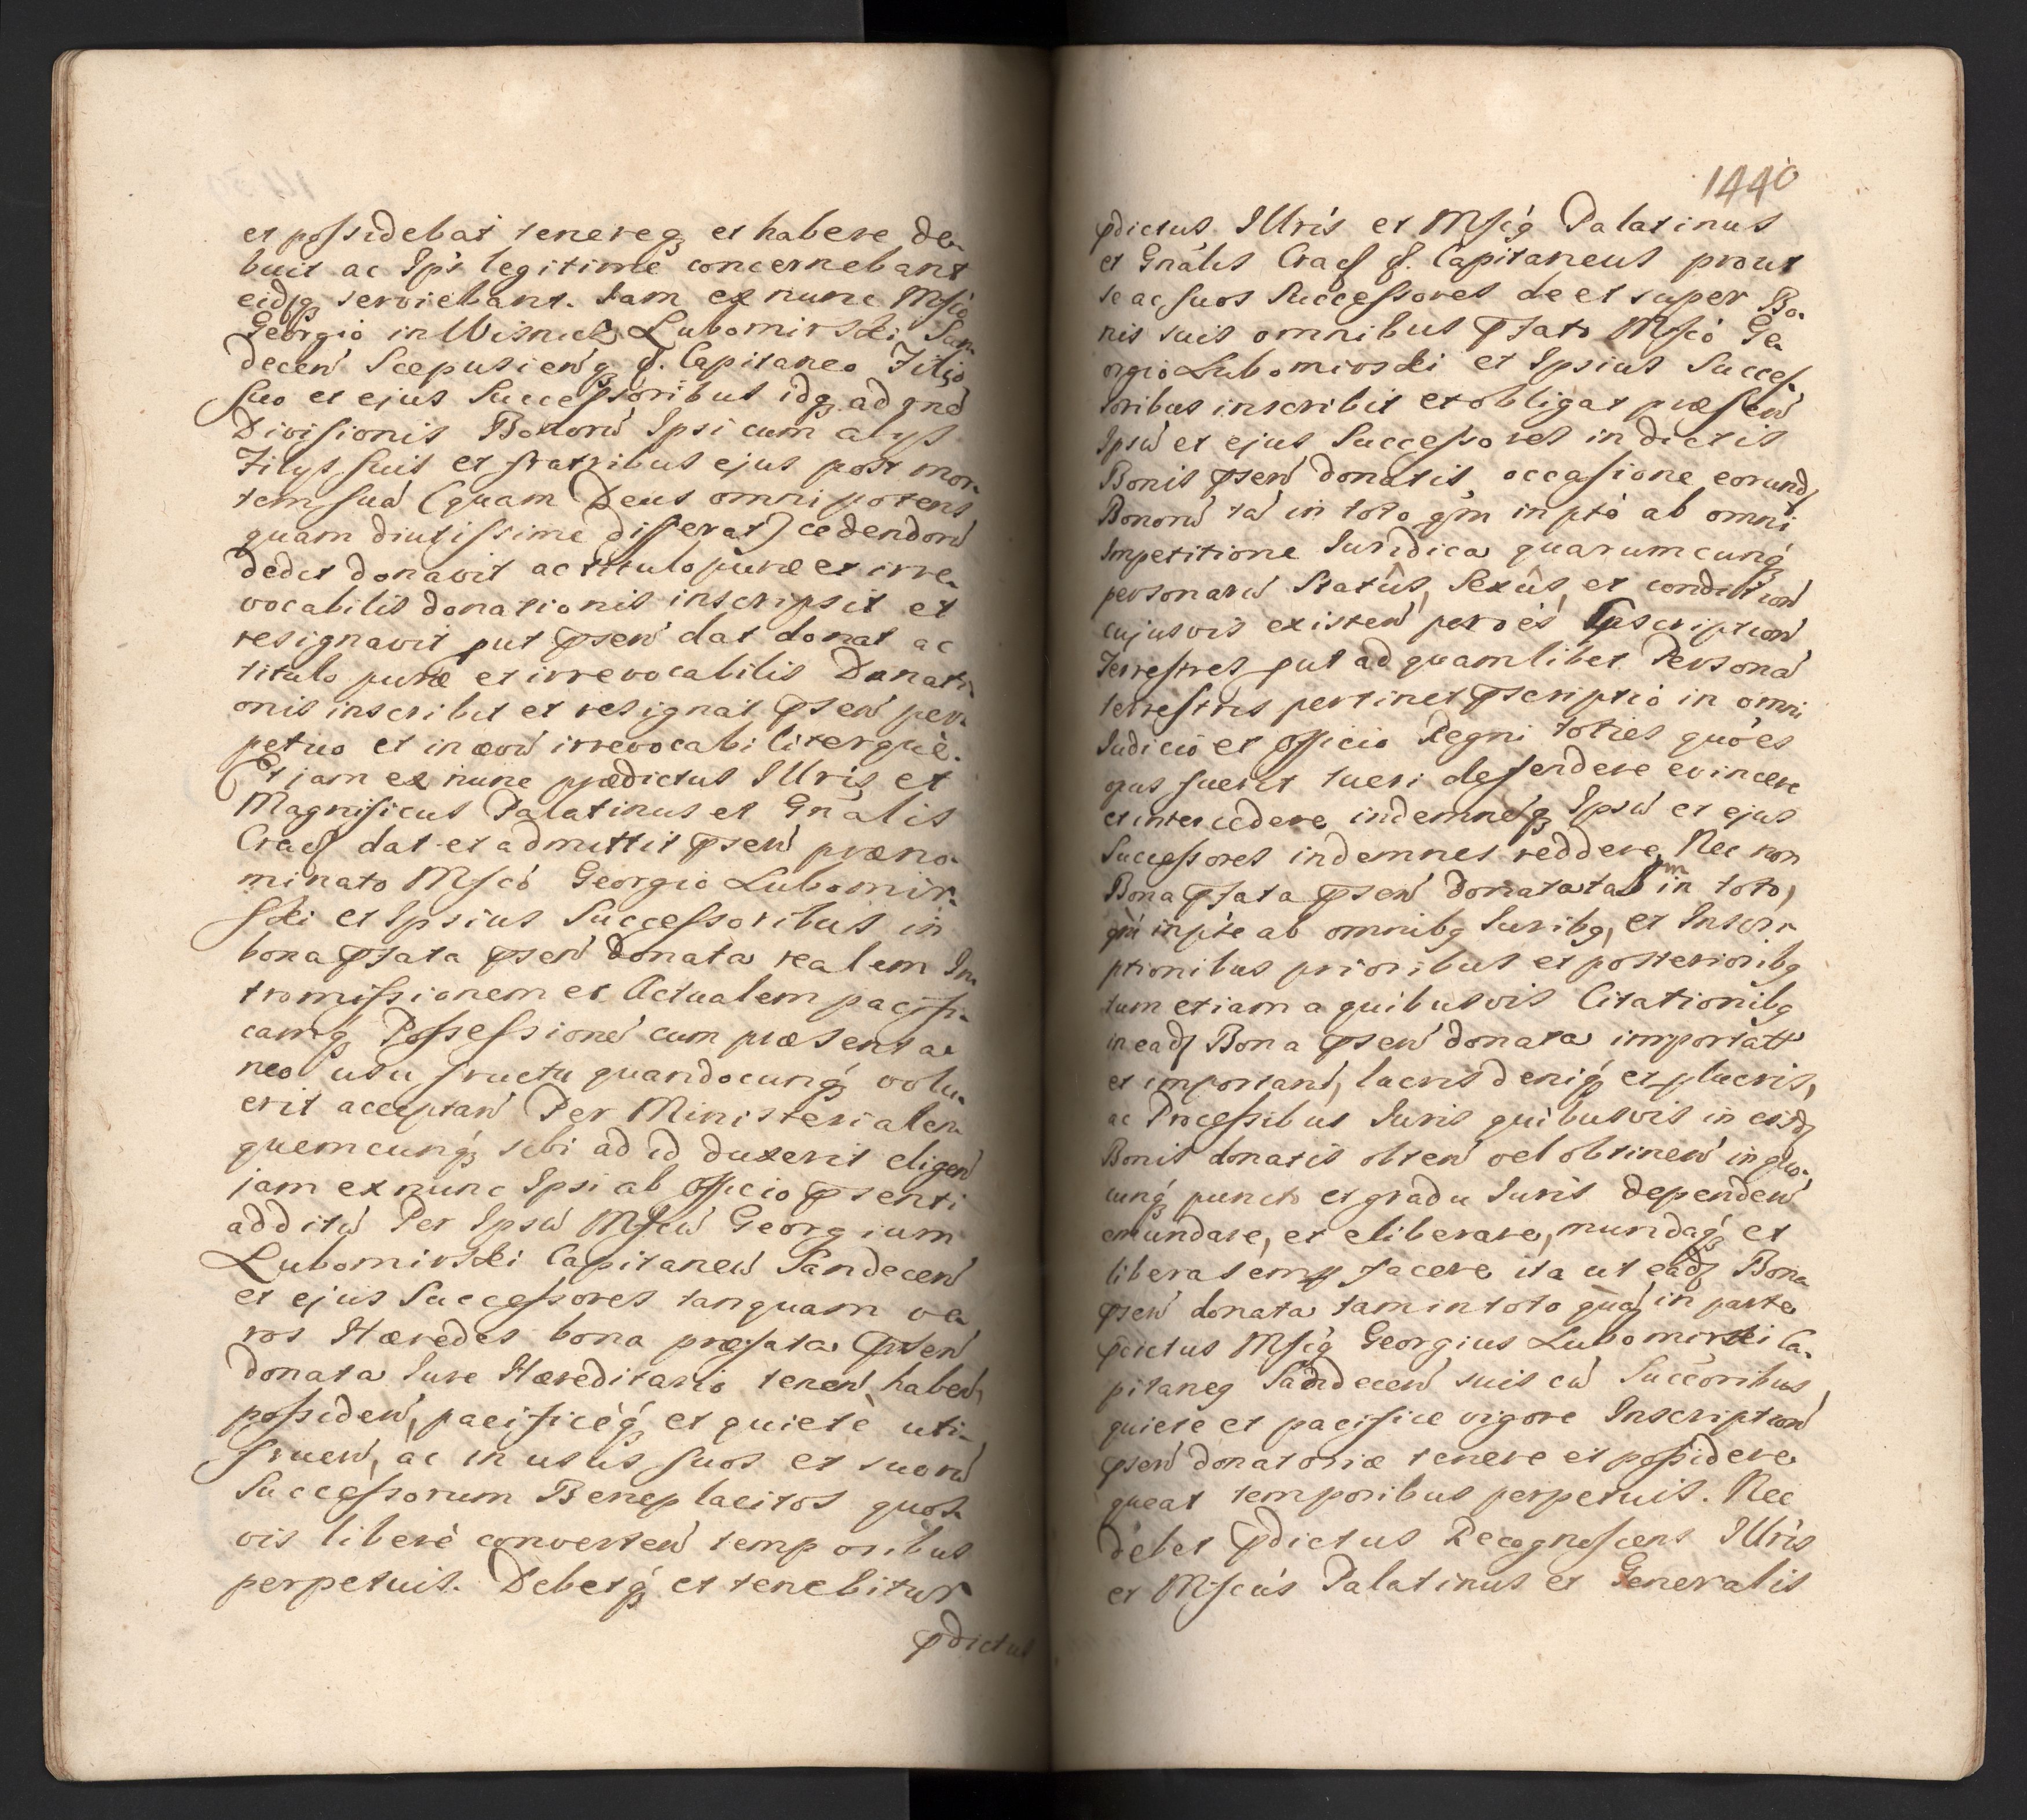 et possidebat tenereq₃ et habere de-
buit ac Ipś legitimé concernebant
eidq₃ serviebant. Iam ex nunc Mfcó
Georgio in Wisnicz Lubomirski San-
decen̄ Scepusien̄q₃ &. Capitaneo Filio
suo et ejus Successoribus idq₃ ad
Divisionis Bonorū Ipsi cum alijs
Filijs suis et fratribus ejus post mor-
tem suā (quam Deus omnipotens
quam diutissime differat) cedendorū
dedit donavit ac titulo puræ et irre-
vocabilis donationis inscripsit et
resignavit put p̄sen̄ dat donat ac
titulo puræ et irrevocabilis Donati-
onis inscribit et resignat p̄sen̄ per-
petuo et in ævū irrevocabiliterquè.
Et jam ex nunc prædictus Illris et
Magnificus Palatinus et Gnālis
Crac̄ dat et admittit p̄sen̄ præno-
minato Mfcó Georgio Lubomir-
ski et Ipsius Successoribus in
bona p̄fata p̄sen̄ donata realem In-
tromissionem et Actualem pacifi-
camq́₃ Possessionē cum præsentae
neo usu fructu quandocunq́₃ volu-
erit acceptan̄ Per Ministerialem
quemcunq́₃ sibi ad id duxerit eligen̄
jam ex nunc Ipsi ab Officio p̄senti
additū Per Ipsū Mfcū Georgium
Lubomirski Capitaneū Sandecen̄
et ejus Successores tanquam ve-
ros Hæredes bona præfata p̄sen̄
donata Iure Hæreditario tenen̄ haben̄,
possiden̄, pacificéq́₃ et quietè uti-
fruen̄, ac in usus suos et suorū
Successorum Beneplacitos quos-
vis liberè converten̄ temporibus
perpetuis. Debetq́₃ et tenebitur
p̄dictus
1440
p̄dictus Illrís et Mfcq́ Palatinus
et Gnālis Crac̄ &. Capitaneus prout
se ac suos Successores de et super Bo-
nis suis omnibus p̄fato Mfcó Ge-
orgio Lubomirski et Ipsius Succes-
soribus inscribit et obligat præsen̄
Ipsū et ejus Successores in dictis
Bonis p̄sen̄ donatis occasione eorund₃
Bonorū tā in toto q̄m in pté ab omni
Impetitione Iuridica quarumcunq́₃
personarū Statûs, Sexûs, et condition̄
cujusvis existen̄ per oēs Inscription̄
Terrestres put ad quamlibet Personā
terrestris pertinet p̄scriptió in omni
Iudicio et Officio Regni toties quoēs
opus fuerit tueri defendere evincere
et intercedere indemnéq₃ Ipsū et ejus
Successores indemnes reddere, Nec non
Bona p̄fata p̄sen̄ donata tam in toto,
q̄m in pte ab omnibq Iuribq, et Inscri-
ptionibus prioribus et posterioribq
tum etiam a quibusvis Citationibq
in ead₃ Bona p̄sen̄ donata importatt
et importan̄, lucris deniq́₃ et plucris,
ac Processibus Iuris quibusvis in eisd₃
Bonis donatis obten̄ vel obtinen̄ in quo-
cunq́₃ puncto et gradu Iuris dependen̄
emundare, et eliberare, mundaq́₃ et
libera semp facere ita ut ead₃ Bona
p̄sen̄ donata tam in toto quā₃ in parte
p̄dictus Mfcq́ Georgius Lubomirski Ca-
pitaneq Sandecen̄ suis cū Succōribus,
quiete et pacifice vigore Inscription̄
p̄sen̄ donatoriæ tenere et possidere
queat temporibus perpetuis. Nec
debet p̄dictus Recognoscens Illrís
et Mfcús Palatinus et Generalis